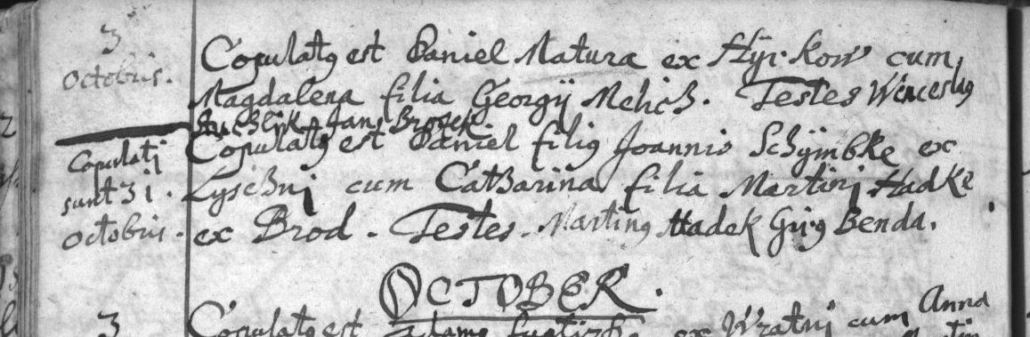 3
Octobris.
Copulatꝯ est Daniel Matura ex Hyrkow cum
Magdalena filia Georgÿ Mehich. Testes Wenceslꝯ
Janꝯ Brosek
Copulati
sunt 31.
Octobris.
Copulatꝯ est Daniel filiꝯ Joannis Schÿmbke ex
Lysehni cum Catharina filia Martini Hadke
ex Brod. Testes. Martinꝯ Hadek Benda.
OCTOBER.
3
Copulatꝯ est ex Wratni cum Anna